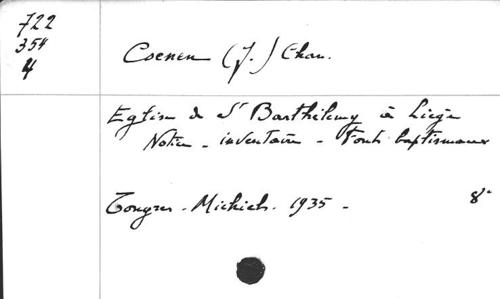 722
354
4
Coenen (J.) Chan.
Eglise de St Barthélemy à Liège
Notice - inventaire - Fonts baptismaux
Tongres - Michiels - 1935 -
8°